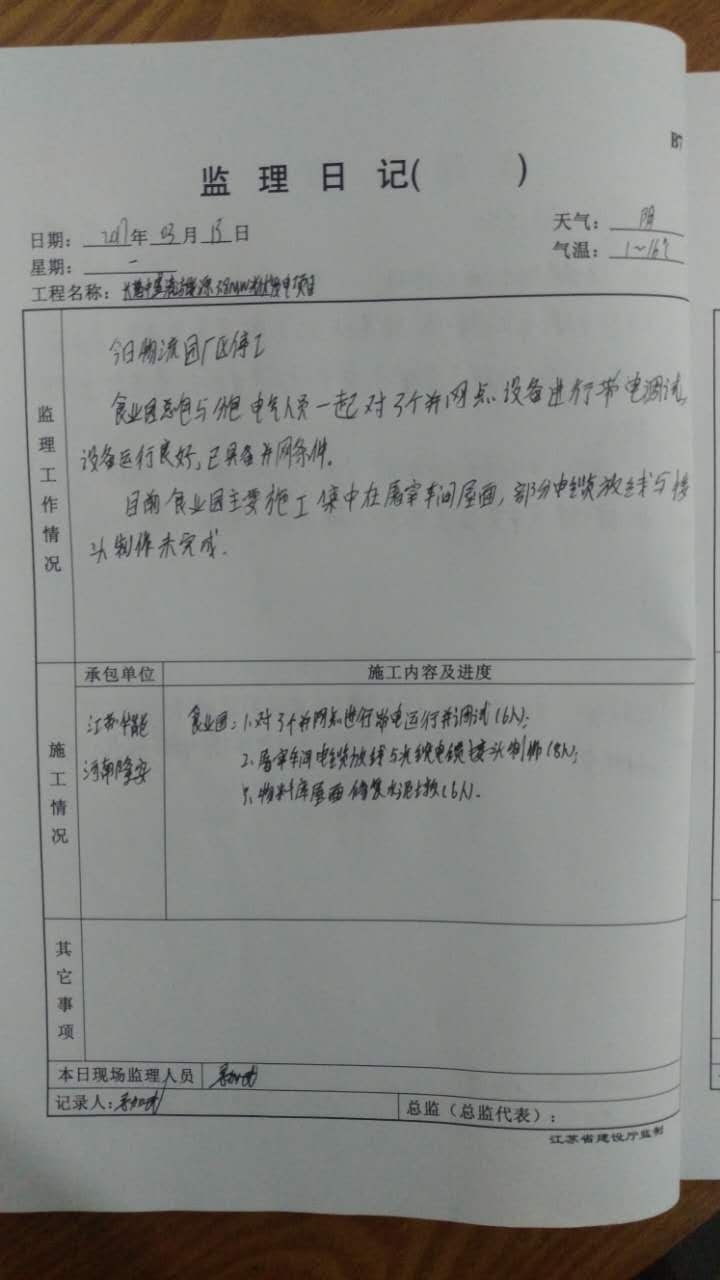 B7
监 理 日 记( )
日期：2017年 03月 13日
天气：阴
星期：一
气温：1~16℃
工程名称：
监理工作情况
今日物流园厂区停工
食业园总包与分包电气人员一起对3个并网点设备进行带电调试,
设备运行良好,已具备并网条件。
目前食业园主要施工集中在屠宰车间屋面,部分电缆放线与接
头制作未完成.
施工情况
承包单位
施工内容及进度
江苏华能
河南隆安
食业园：1.对3个并网点进行带电运行并调试(6人);
2.屠宰车间电缆放线与光缆电缆接头制作(8人);
3.物料库屋面修复水泥墩(6人).
其它事项
本日现场监理人员
记录人：
总监（总监代表）：
江苏省建设厅监制